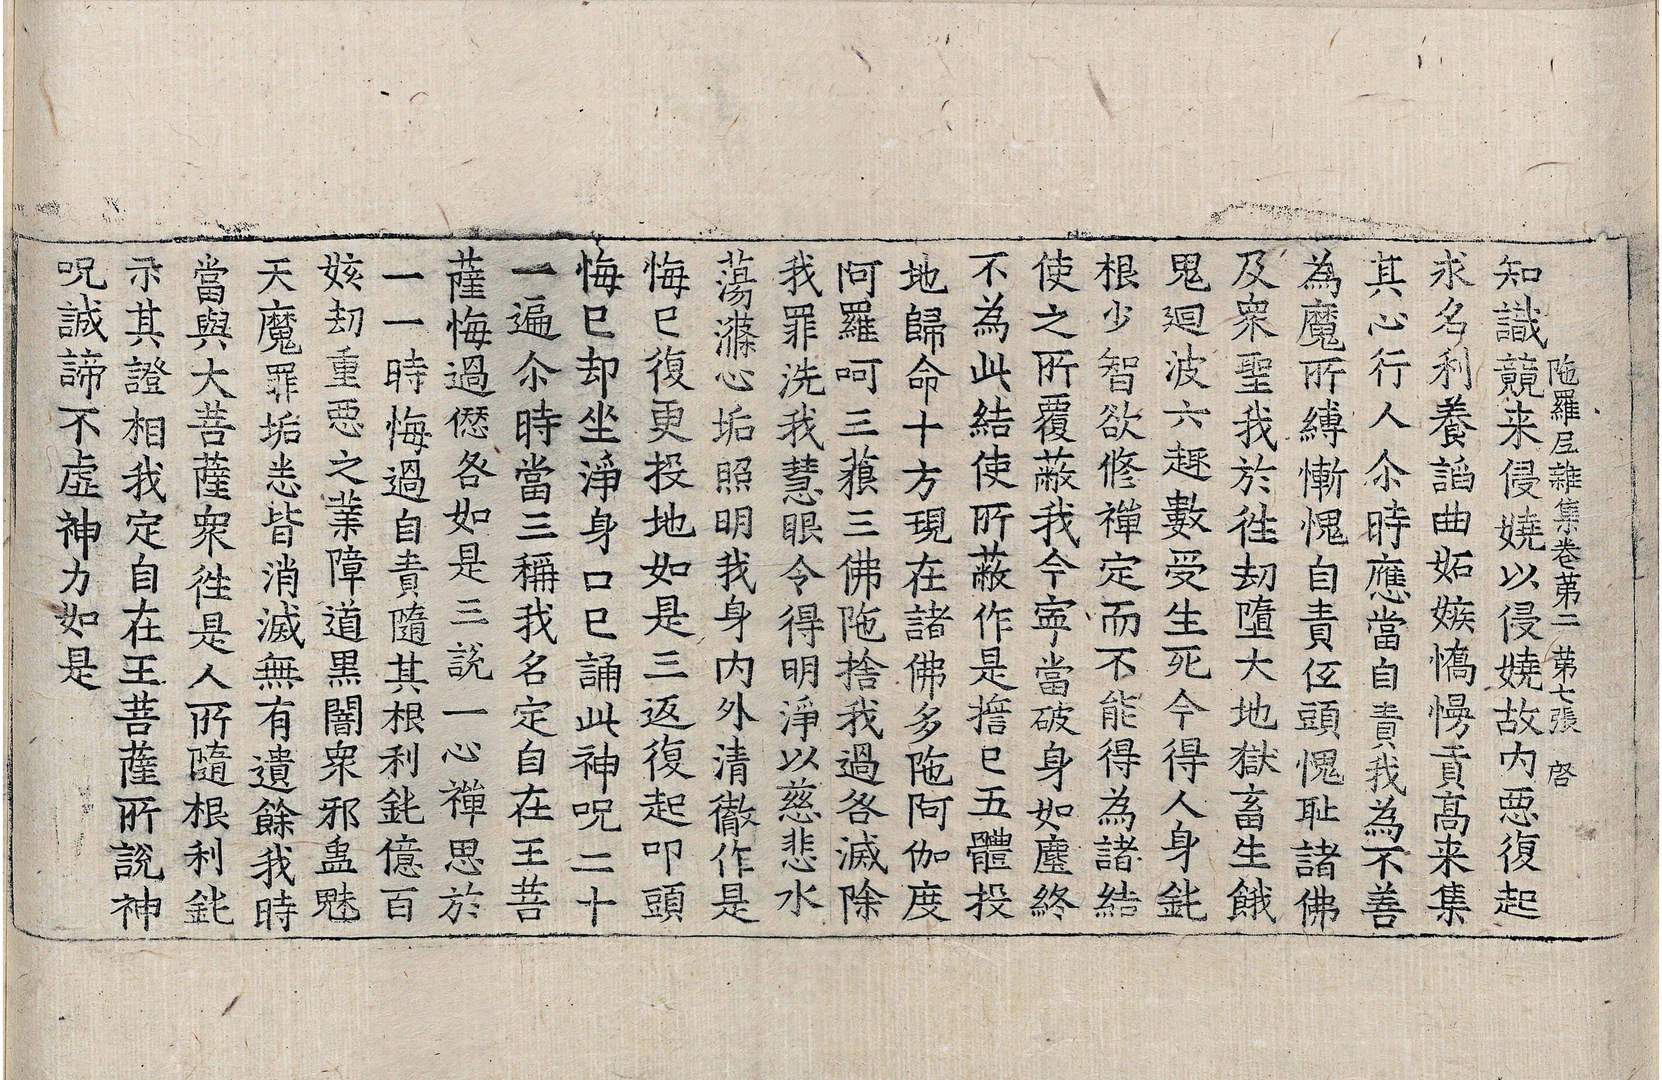 陁羅尼雜集卷第二 第七張 啓
知識競来侵嬈以侵嬈故内惡復起
求名利養謟曲妬嫉憍慢貢髙来集
其心行人尒時應當自責我為不善
為魔所縛慚愧自責伍頭愧耻諸佛
及衆聖我於徃劫墮大地獄畜生餓
鬼廻波六趣數受生死今得人身鈍
根少智欲修禪定而不能得為諸結
使之所覆蔽我今寜當破身如塵終
不為此結使所蔽作是擔已五體投
地歸命十方現在諸佛多陁阿伽度
阿羅呵三藐三佛陁捨我過咎滅除
我罪洗我慧眼令得明淨以慈悲水
蕩滌心垢照明我身内外清徹作是
悔已復更投地如是三返復起叩頭
悔已却坐淨身口已誦此神呪二十
一遍尒時當三稱我名定自在王菩
薩悔過𠎝咎如是三說一心禪思於
一一時悔過自責隨其根利鈍億百
姟劫重惡之業障道黒闇衆邪蠱魅
天魔罪垢悉皆消滅無有遺餘我時
當與大菩薩衆徃是人所隨根利鈍
示其證相我定自在王菩薩所說神
呪誠諦不虛神力如是